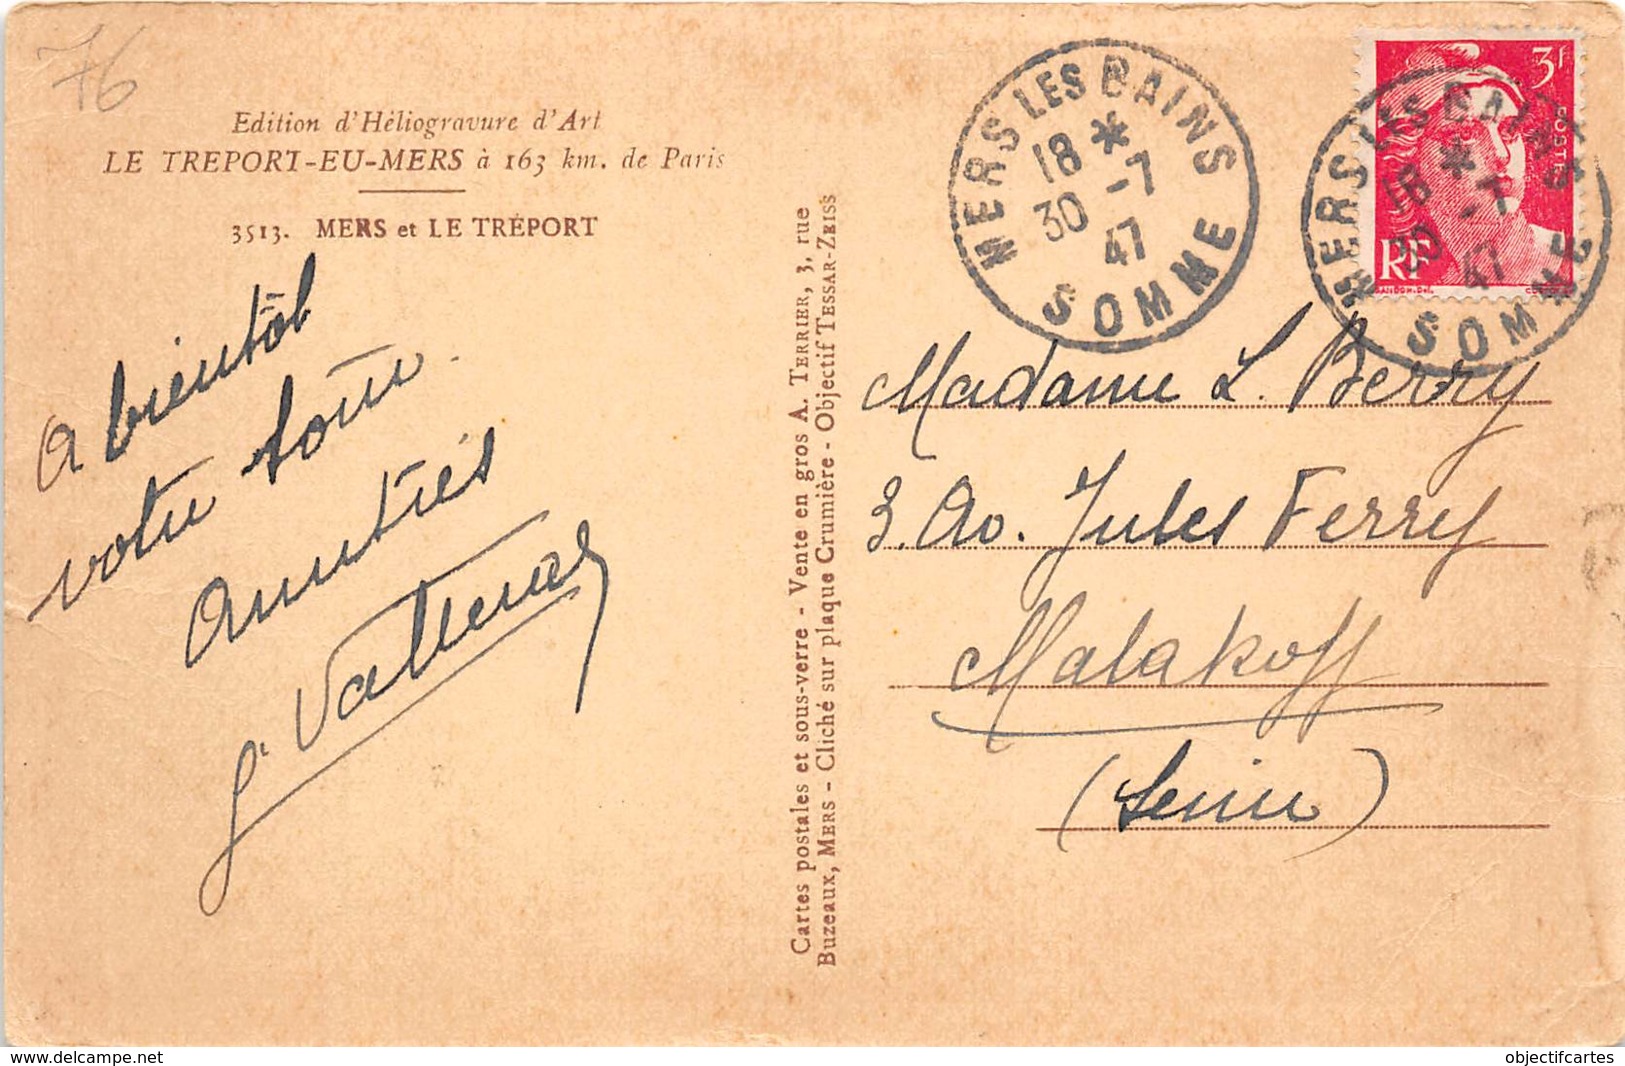 76
Edition d'Héliogravure d'Art
LE TREPORT-EU-MERS à 163 km. de Paris
3513. MERS et LE TRÉPORT
A bientôt
votre
Amitiés
Cartes postales et sous-verre - Vente en gros A. TERRIER, 3, rue
Buzeaux, MERS - Cliché sur plaque Crumière - Objectif TESSAR-ZEISS
MERS LES BAINS
18 *
30 -7
47
SOMME
3F
POSTES
RF
MERS LES BAINS
18 *
30 -7
47
SOMME
Madame L. Berry
3. Av. Jules Ferry
Malakoff
(Seine)
www.delcampe.net
objectifcartes